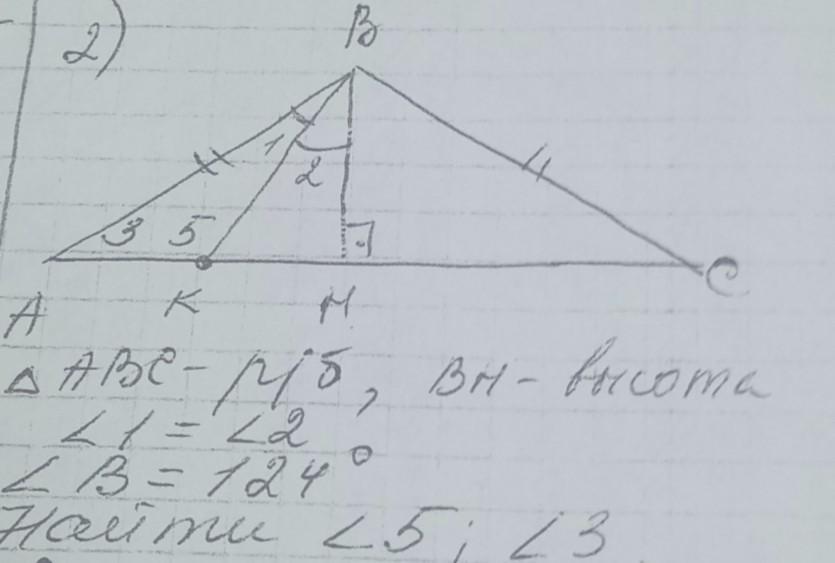 2)
B
1
2
3
5
4
A
K
H
C
△ ABC - р/б, BH - высота
∠1 = ∠2
∠B = 124°
Найти ∠5; ∠3